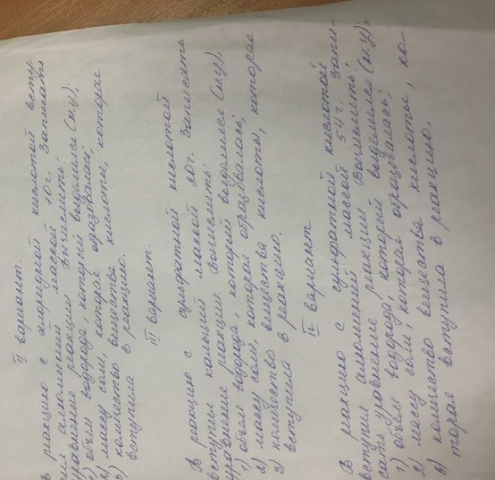 II вариант.
В реакцию с хлоридной кислотой всту
пил алюминий массой 10 г. Записать
уравнение реакции. Вычислить:
1) объем водорода, который выделился (н.у);
2) массу соли, которая образовалась;
3) количество вещества кислоты, которая
вступила в реакцию.
III вариант.
В реакцию с сульфатной кислотой
вступил кальций массой 80 г. Записать
уравнение реакции. Вычислить:
1) объем водорода, который выделился (н.у);
2) массу соли, которая образовалась;
3) количество вещества кислоты, которая
вступила в реакцию.
IV вариант
В реакцию с сульфатной кислотой
вступил алюминий массой 54 г. Запи-
сать уравнение реакции. Вычислить:
1) объем водорода, который выделился (н.у);
2) массу соли, которая образовалась;
3) количество вещества кислоты, ко-
торая вступила в реакцию.